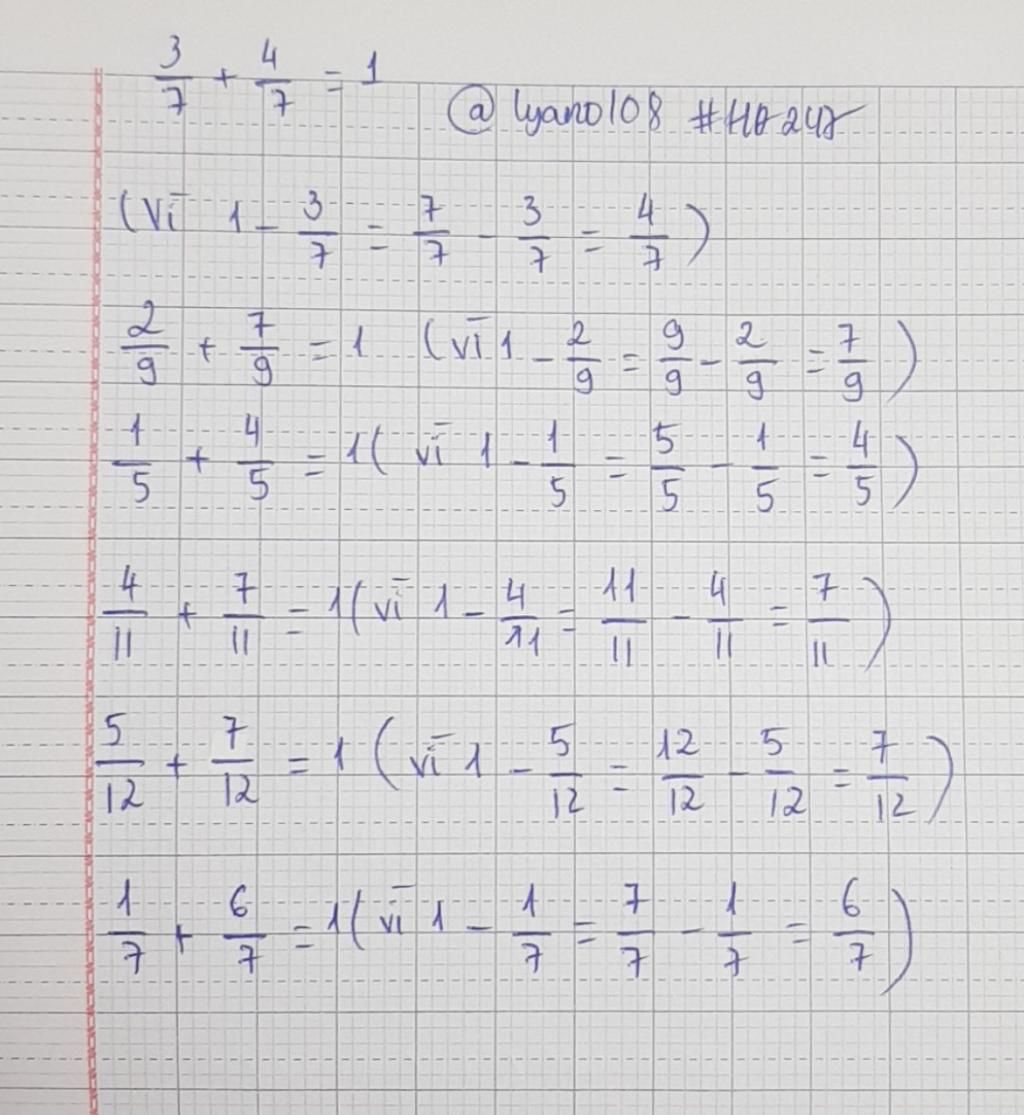 3/7 + 4/7 = 1
@lyano108 #HA247
(vì 1 - 3/7 = 7/7 - 3/7 = 4/7)
2/9 + 7/9 = 1 (vì 1 - 2/9 = 9/9 - 2/9 = 7/9)
1/5 + 4/5 = 1 (vì 1 - 1/5 = 5/5 - 1/5 = 4/5)
4/11 + 7/11 = 1 (vì 1 - 4/11 = 11/11 - 4/11 = 7/11)
5/12 + 7/12 = 1 (vì 1 - 5/12 = 12/12 - 5/12 = 7/12)
1/7 + 6/7 = 1 (vì 1 - 1/7 = 7/7 - 1/7 = 6/7)